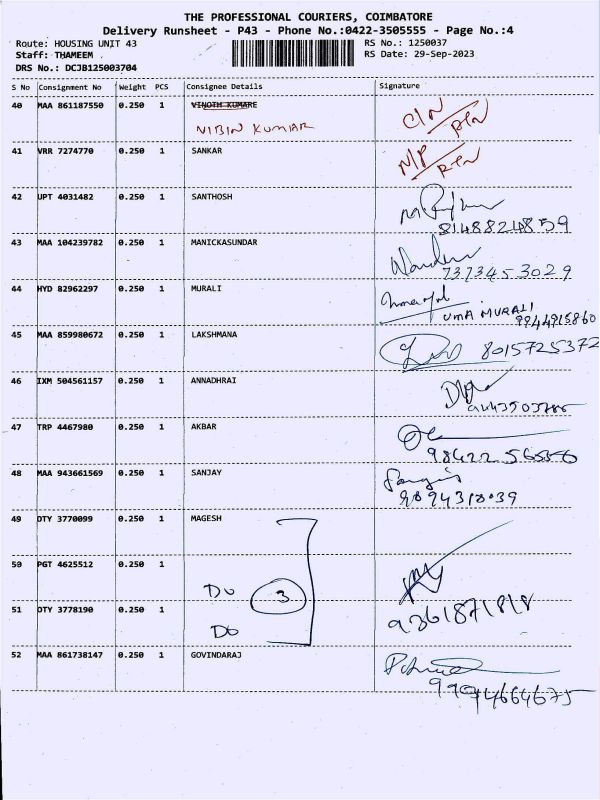 THE PROFESSIONAL COURIERS, COIMBATORE
Delivery Runsheet - P43 - Phone No.:0422-3505555 - Page No.:4
Route: HOUSING UNIT 43 RS No.: 1250037
Staff: THAMEEM RS Date: 29-Sep-2023
DRS No.: DCJB125003704
S No Consignment No Weight PCS Consignee Details Signature
40 MAA 861187550 0.250 1 VINOTH KUMARE
NIBIN KUMAR C/N RTN
41 VRR 7274770 0.250 1 SANKAR N/P RTN
42 UPT 4031482 0.250 1 SANTHOSH
8148824859
43 MAA 104239782 0.250 1 MANICKASUNDAR
7373453029
44 HYD 82962297 0.250 1 MURALI
UMA MURALI
9944915860
45 MAA 859980672 0.250 1 LAKSHMANA
8015725372
46 IXM 504561157 0.250 1 ANNADHRAI
47 TRP 4467980 0.250 1 AKBAR
48 MAA 943661569 0.250 1 SANJAY
9894318039
49 OTY 3770099 0.250 1 MAGESH
50 PGT 4625512 0.250 1
Do 3
51 OTY 3778190 0.250 1
9361871818
Do
52 MAA 861738147 0.250 1 GOVINDARAJ